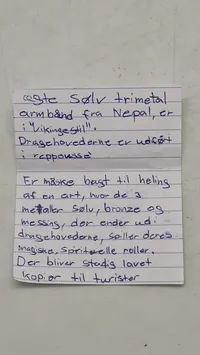 ægte Sølv trimetal
armbånd fra Nepal, er
i "vikingestil".
Dragehovederne er udført
i reppoussé
Er måske bagt til heling
af en art, hvor de 3
metaller sølv, bronze og
messing, der ender ud i
dragehovederne, spiller deres
magiske, spirituelle roller.
Der bliver stadig lavet
kopier til turister